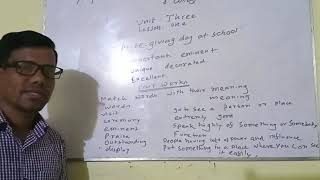 Unit Three
Lesson one
Prize giving day at school
Important eminent
unique decorated
Excellent
Match words with their meaning
words meaning
visit go to see a person or place
ceremony extremely good
eminent speak highly of something or somebody
Praise Function
Outstanding People having lot of power and influence
display Put something in a place where you can see
it easily